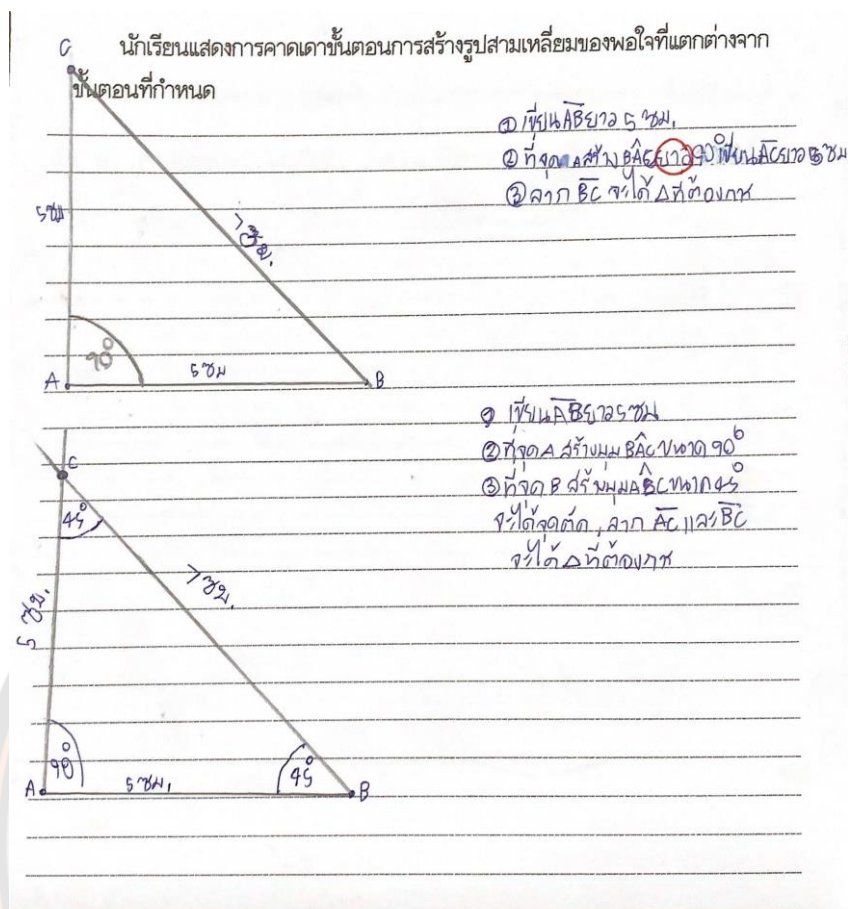 C
นักเรียนแสดงการคาดเดาขั้นตอนการสร้างรูปสามเหลี่ยมของพอใจที่แตกต่างจาก
ขั้นตอนที่กำหนด
① เขียน AB ยาว 5 ซม.
② ที่จุด A สร้าง BÂC ยาว 90° เขียน AC ยาว 5 ซม
③ ลาก BC จะได้ Δ ที่ต้องการ
5 ซม
7 ซม.
90°
5 ซม
A
B
① เขียน AB ยาว 5 ซม
② ที่จุด A สร้างมุม BÂC ขนาด 90°
③ ที่จุด B สร้างมุม AB̂C ขนาด 45°
จะได้จุดตัด , ลาก AC และ BC
จะได้ Δ ที่ต้องการ
C
45°
7 ซม.
5 ซม.
90°
45°
A
5 ซม.
B